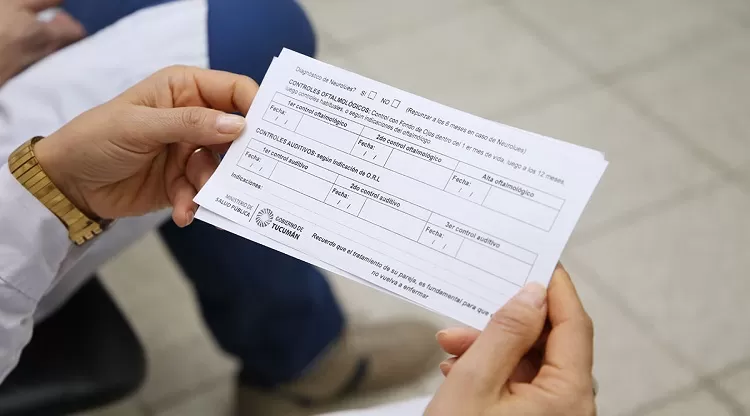 Diagnóstico de Neurolues? SI NO (Repunzar a los 6 meses en caso de Neurolues)
CONTROLES OFTALMOLÓGICOS: Control con Fondo de Ojos dentro del 1 er mes de vida, luego a los 12 meses,
luego controles habituales, o según indicaciones del oftalmólogo
1er control oftalmológico 2do control oftalmológico Alta oftalmológico
Fecha: Fecha: Fecha:
/ / / / / /
CONTROLES AUDITIVOS: según indicación de O.R.L
1er control auditivo 2do control auditivo 3er control auditivo
Fecha: Fecha: Fecha:
/ / / / / /
Indicaciones:
MINISTERIO DE
SALUD PÚBLICA
GOBIERNO DE
TUCUMÁN
Recuerde que el tratamiento de su pareja, es fundamental para que
no vuelva a enfermar